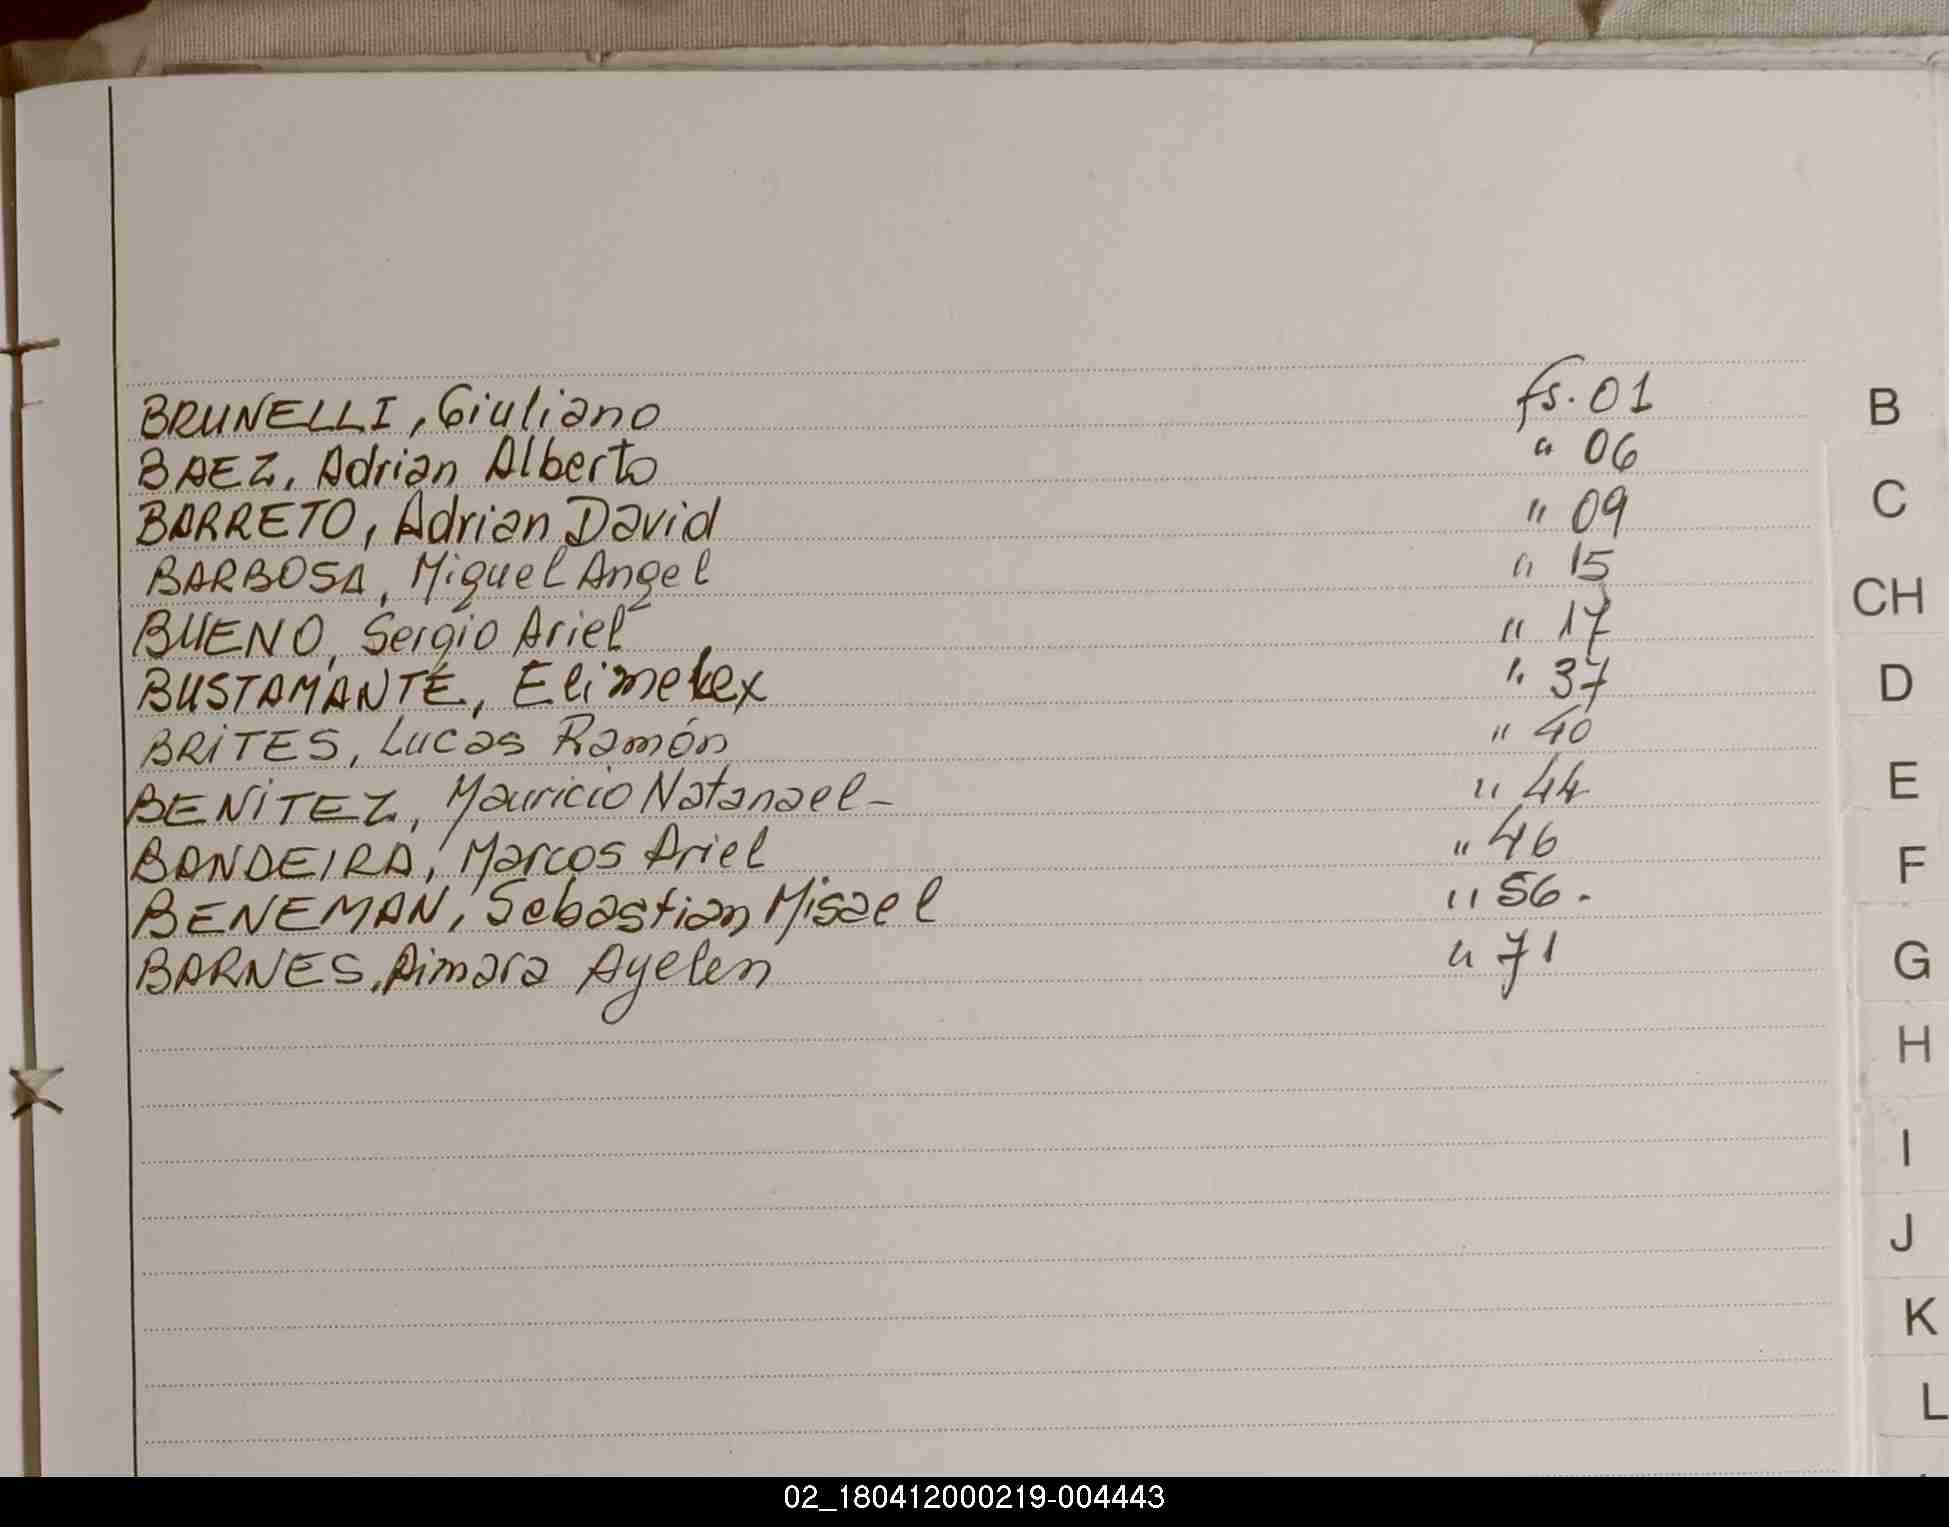 BRUNELLI, Giuliano fs. 01
BAEZ, Adrian Alberto " 06
BARRETO, Adrian David " 09
BARBOSA, Miguel Angel " 15
BUENO, Sergio Ariel " 17
BUSTAMANTE, Elimelex " 37
BRITES, Lucas Ramón " 40
BENITEZ, Mauricio Natanael - " 44
BANDEIRA, Marcos Ariel " 46
BENEMAN, Sebastian Misael " 56.
BARNES, Aimara Ayelen " 71
B
C
CH
D
E
F
G
H
I
J
K
L
02_180412000219-004443